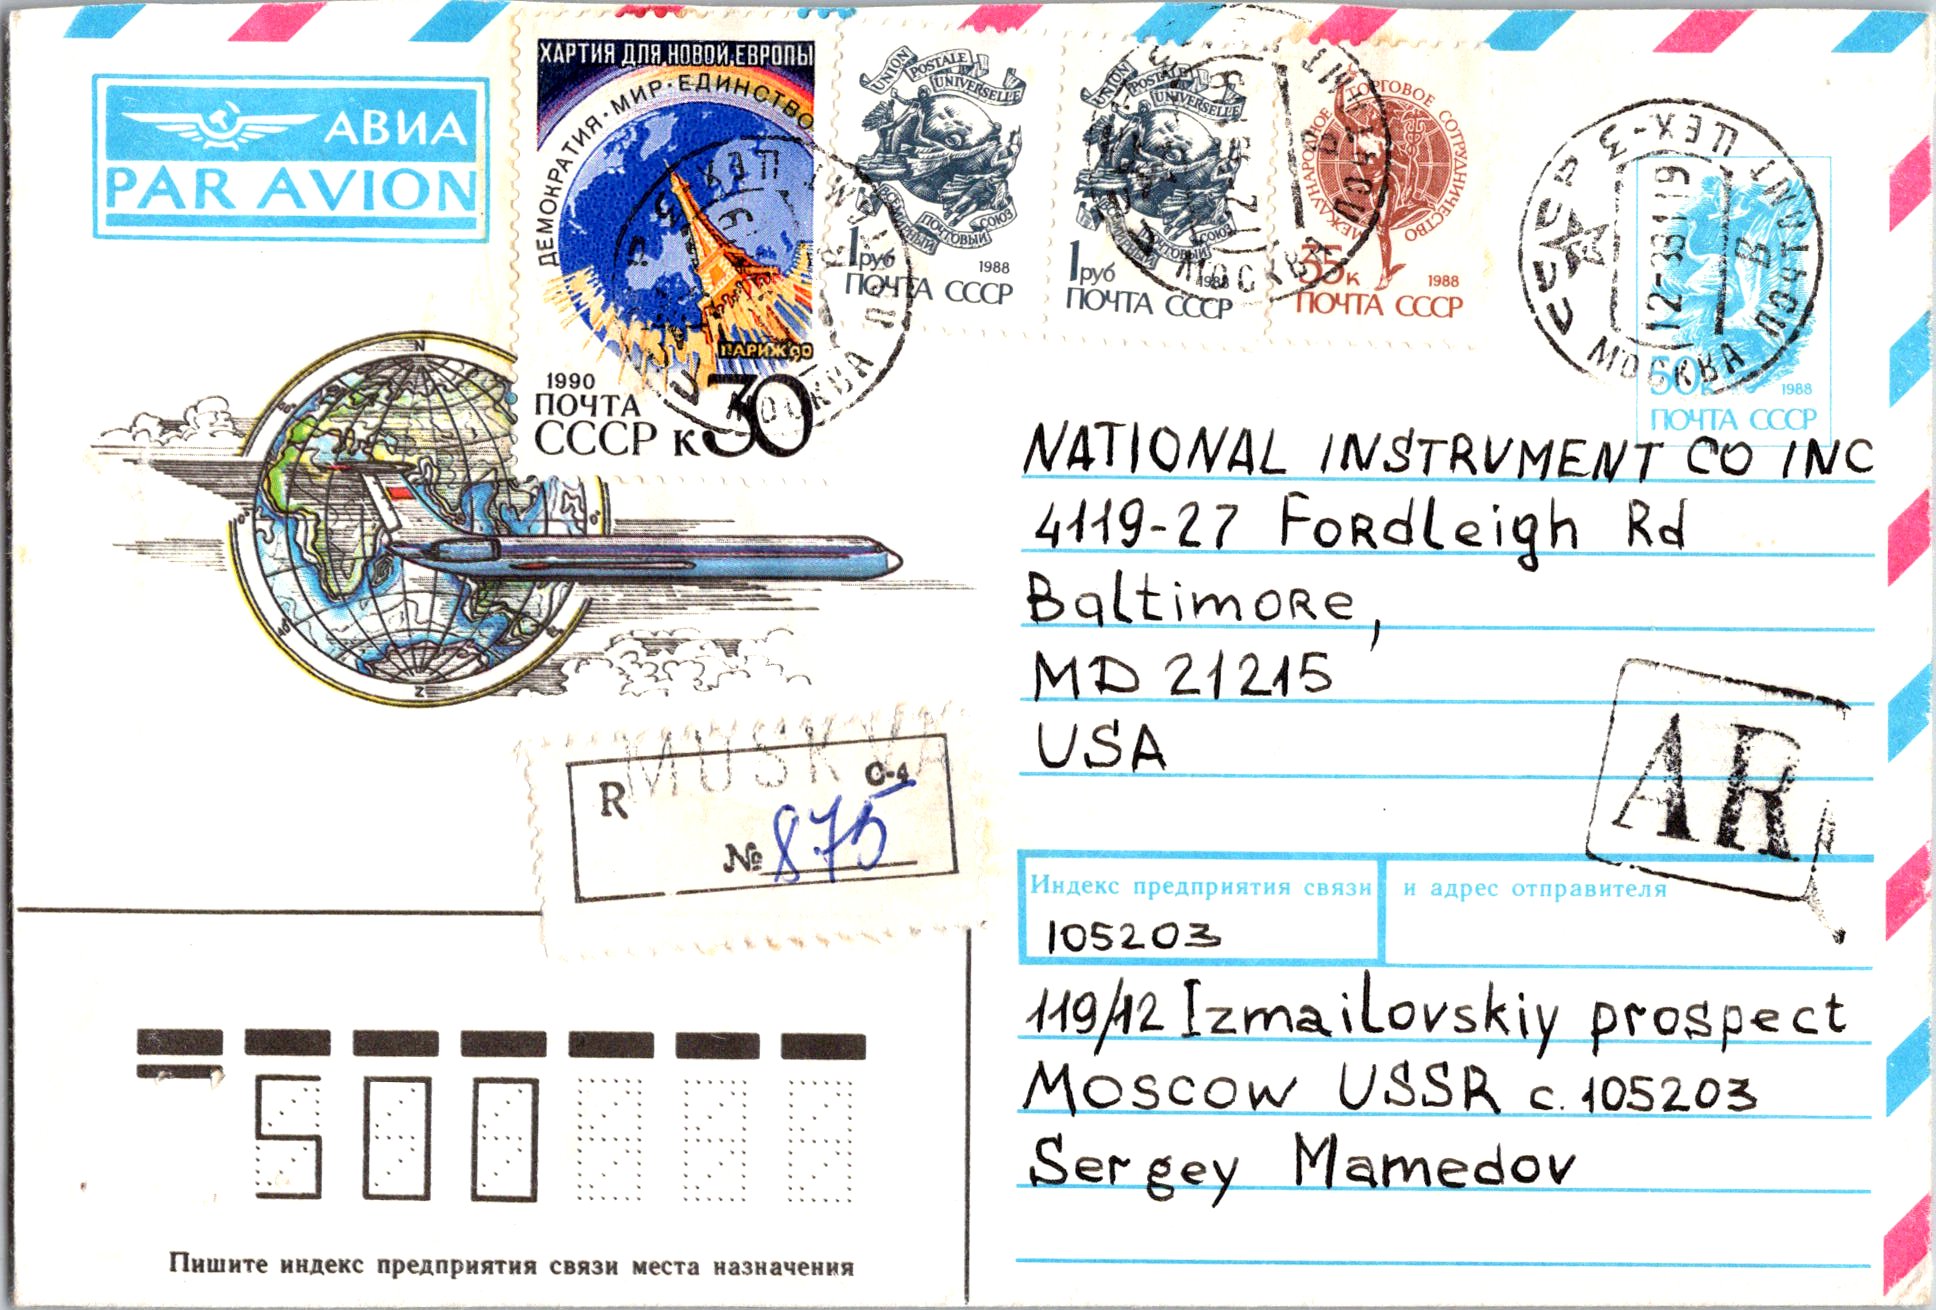 АВИА
PAR AVION
ХАРТИЯ ДЛЯ НОВОЙ ЕВРОПЫ
ДЕМОКРАТИЯ·МИР·ЕДИНСТВО
ПАРИЖ'90
1990
ПОЧТА
СССР к30
UNION POSTALE UNIVERSELLE
ВСЕМИРНЫЙ ПОЧТОВЫЙ СОЮЗ
1руб 1988
ПОЧТА СССР
UNION POSTALE UNIVERSELLE
ВСЕМИРНЫЙ ПОЧТОВЫЙ СОЮЗ
1руб 1988
ПОЧТА СССР
МЕЖДУНАРОДНОЕ ТОРГОВОЕ СОТРУДНИЧЕСТВО
35к 1988
ПОЧТА СССР
СССР
МОСКВА
50к 1988
ПОЧТА СССР
NATIONAL INSTRUMENT CO INC
4119-27 Fordleigh Rd
Baltimore,
MD 21215
USA
MOSKVA
R С-4
№ 875
AR
Индекс предприятия связи и адрес отправителя
105203
119/12 Izmailovskiy prospect
Moscow USSR c. 105203
Sergey Mamedov
500
Пишите индекс предприятия связи места назначения